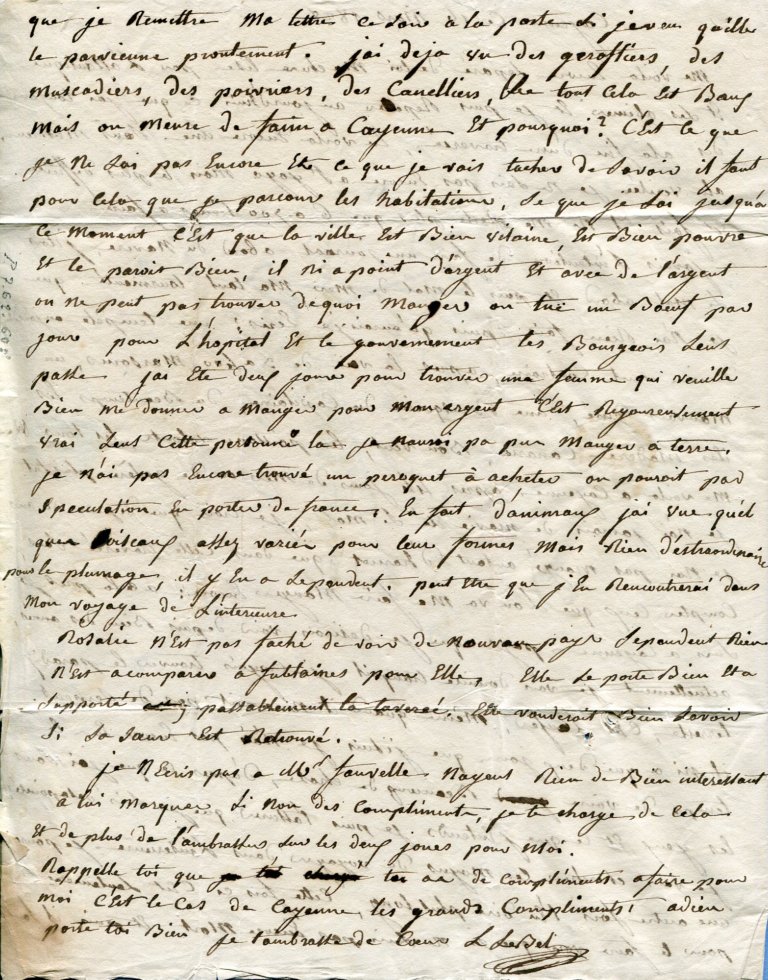 que je Remettre Ma lettre ce soir a la poste Si je veu qu'elle
le parvienne prontement. j'ai deja vu des geroffiers, des
Muscadiers, des poivriers, des Canelliers, tout Cela Est Baux
Mais on Meure de faim a Cayenne Et pourquoi? C'Est ce que
je Ne Sai pas Encore Et ce que je vais tacher de Savoir il faut
pour Cela que je parcoure les habitations, Se que je Sai jusqu'a
Ce Moment C'Est que la ville Est Bien vilaine, Est Bien pauvre
Et le paroit Bien, il ni a point d'argent Et avec de l'argent
on ne peut pas trouver de quoi Manger on tuë un Boeuf par
jour pour L'hôpital Et le gouvernement les Bourgeois S'ens
passe j'ai Ete deux jours pour trouver une femme qui veuille
Bien me donner a Manger pour Mon argent C'Est Regoureusement
vrai Sens Cette personne la je Naurois pa pu Manger a terre.
je n'ai pas Encore trouvé un peroquet à acheter on pourait par
Speculation En porter de france, En fait d'animaux j'ai vue quel
que oiseaux assez variér pour leur formes Mais Rien d'extraordinaire
pour le plumage, il y En a Cependent. peut Etre que j'En Rencontrerai dans
Mon voyage de L'interieure
Rosalie N'Est pas faché de voir de nouveau pays Cependent Rien
N'Est a comparer à fublaines pour Elle, Elle Se porte Bien Et a
Supporté passablement la traversé. Elle voudroit Bien Savoir
Si Sa Soeur Est Retrouvé.
je N'Ecris pas a Mr. fauvelle Nayent Rien de Bien interessant
a lui Marquer Si Non des Compliments, je te charge de Cela
Et de plus de l'ambrasser Sur les deux joues pour Moi.
Rappelle toi que tu aa de Compliments a faire pour
Moi C'Est le Cas de Cayenne, les grands Compliments adieu
porte toi Bien je t'ambrasse de Coeur L LeBel